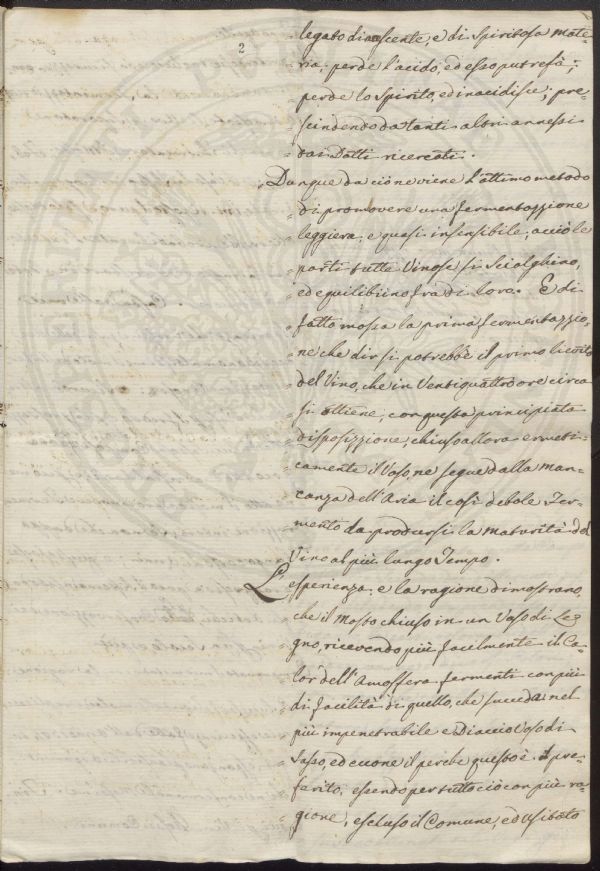 2
legato di nascente, e di Spiritosa mate-
ria; perde l'acido, ed esso putrefà;
perde lo Spirito, ed inacidisce; pre-
scindendo da tanti altri annessi
dai Dotti ricercati.
Dunque da ciò ne viene l'ottimo metodo
di promovere una fermentazzione
leggiera, e quasi insensibile, acciò le
parti tutte Vinose si sciolghino,
ed equilibrino frà di loro. E di
fatto mossa la prima fermentazzio-
ne che dir si potrebbe il primo
del Vino, che in Ventiquattro ore circa
si ottiene, con questa principiata
disposizzione, chiuso allora ermeti-
camente il Vaso, ne segue dalla man-
canza dell'Aria il così debole Fer-
mento da prodursi la maturità del
Vino al più lungo Tempo.
L'esperienza, e la ragione dimostrano,
che il Mosto chiuso in un Vaso di Le-
gno, ricevendo più facilmente il Ca-
lor dell'Amosfera fermenti con più
di facilità di quello, che succeda nel
più impenetrabile e Diaccio Vaso di
Sasso, ed eccone il perche questo è il pre-
ferito; essendo per tutto ciò con più ra-
gione, escluso il Comune, ed usitato